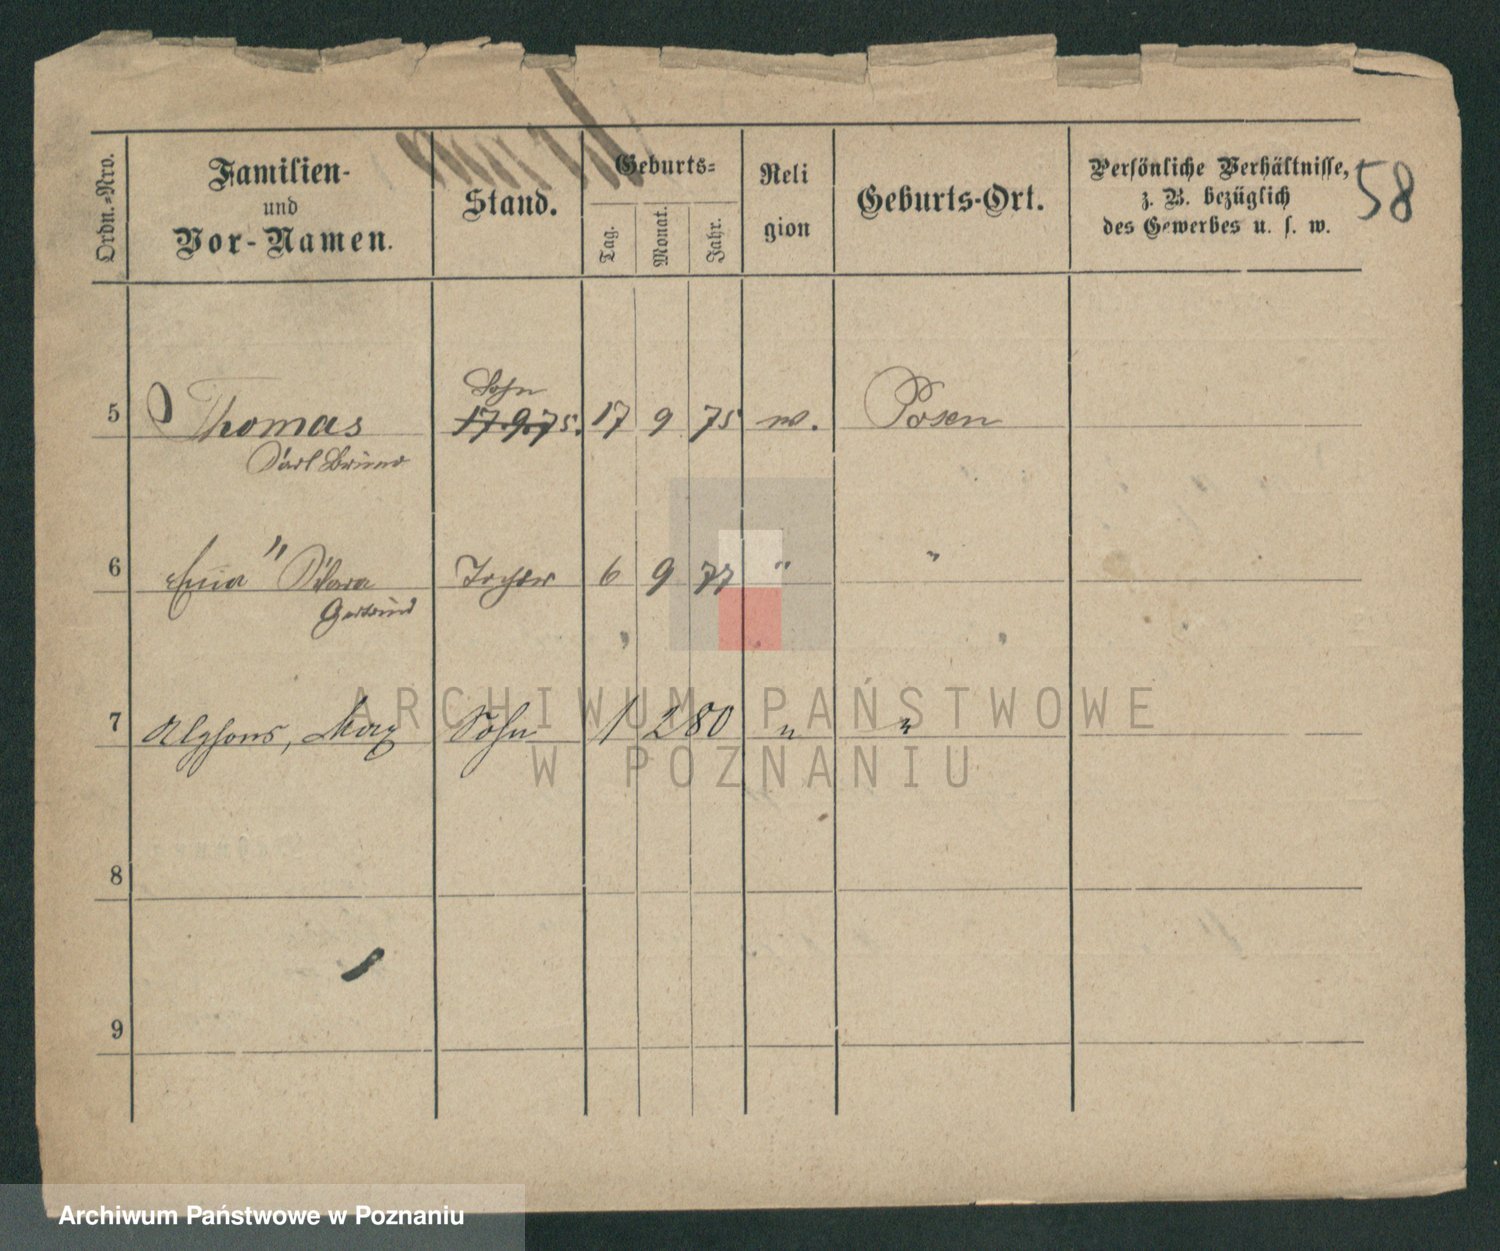 58
Ordn.-Nro.
Familien-
und
Vor-Namen.
Stand.
Geburts-
Tag.
Monat.
Jahr.
Reli
gion
Geburts-Ort.
Persönliche Verhältnisse,
z. B. bezüglich
des Gewerbes u. s. w.
Sohn
5 Thomas 17.9.75. 17 9 75 w. Posen
Carl Bruno
6 " Clara Tochter 6 9 77 " "
Gertrud
7 Alphons, Max Sohn 1 2 80 " "
8
9
ARCHIWUM PAŃSTWOWE
W POZNANIU
Archiwum Państwowe w Poznaniu